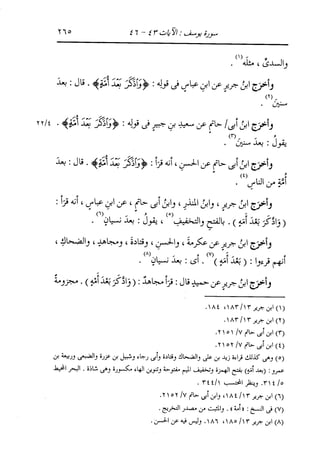 سورة يوسف : الآيات ٤٣ - ٤٦
٢٦٥
والسدىِّ ، مثلَه(١) .
وأخرَج ابنُ جريرٍ عن ابنِ عباسٍ فى قولِه : ﴿وَادَّكَرَ بَعْدَ أُمَّةٍ﴾ . قال : بعدَ
سنينَ(٢) .
وأخرَج ابنُ أبى/ حاتمٍ عن سعيدِ بنِ جبيرٍ فى قولِه : ﴿وَادَّكَرَ بَعْدَ أُمَّةٍ﴾ . ٢٢/٤
يقولُ : بعدَ سنينَ(٣) .
وأخرَج ابنُ أبى حاتمٍ عن الحسنِ ، أنه قرَأ : ﴿وَادَّكَرَ بَعْدَ أُمَّةٍ﴾ . قال : بعدَ
أُمَّةٍ من الناسِ(٤) .
وأخرَج ابنُ جريرٍ ، وابنُ المنذرِ ، وابنُ أبى حاتمٍ ، عن ابنِ عباسٍ ، أنه قرَأ :
( وَادَّكَرَ بَعْدَ أَمَهٍ ) . بالفتحِ والتخفيفِ(٥) ، يقولُ : بعدَ نسيانٍ(٦) .
وأخرَج ابنُ جريرٍ عن عكرمةَ ، والحسنِ ، وقتادةَ ، ومجاهدٍ ، والضحاكِ ،
أنهم قرءوا : ( بَعْدَ أَمَهٍ )(٧) . أى : بعدَ نسيانٍ(٨) .
وأخرَج ابنُ جريرٍ عن حميدٍ قال : قرَأ مجاهدٌ : ( وَادَّكَرَ بَعْدَ أَمْهٍ ) . مجزومةً
(١) ابن جرير ١٨٣/١٣ ، ١٨٤.
(٢) ابن جرير ١٨٣/١٣.
(٣) ابن أبى حاتم ٢١٥١/٧.
(٤) ابن أبى حاتم ٢١٥٢/٧.
(٥) وهى كذلك قراءة زيد بن على والضحاك وقتادة وأبى رجاء وشبيل بن عزرة والضبعى وربيعة بن
عمرو : (بعد أمه) بفتح الهمزة وتخفيف الميم مفتوحة وتنوين الهاء مكسورة وهى شاذة . البحر المحيط
٣١٤/٥ ، وينظر المحتسب ٣٤٤/١.
(٦) ابن جرير ١٨٤/١٣، وابن أبى حاتم ٢١٥٢/٧.
(٧) فى النسخ : «أمة» . والمثبت من مصدر التخريج .
(٨) ابن جرير ١٨٥/١٣، ١٨٦. وليس فيه عن الحسن .